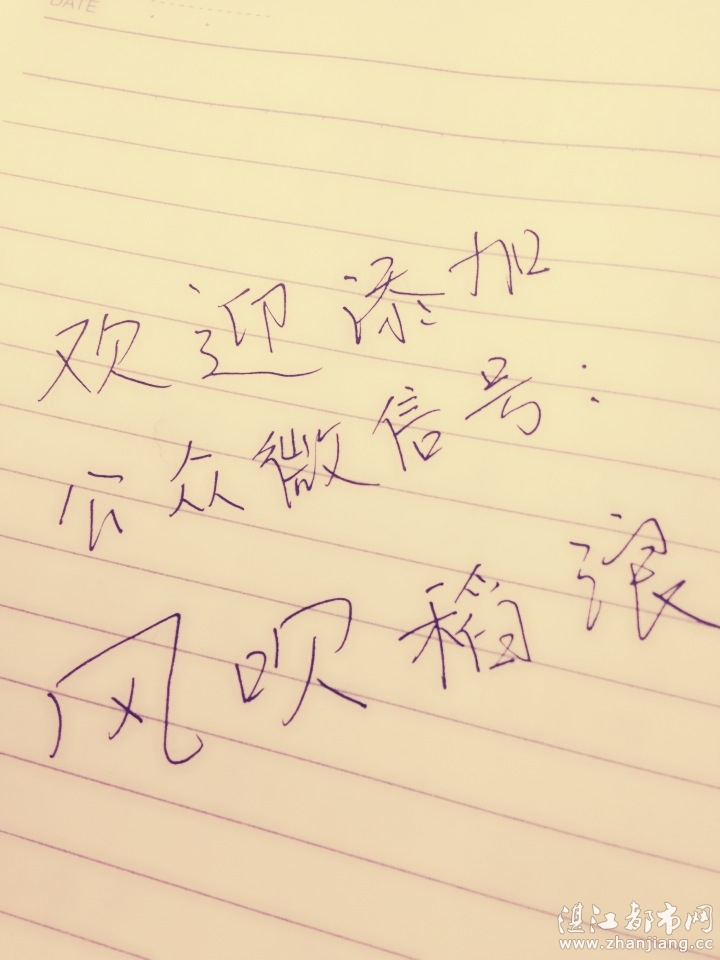 DATE
欢迎添加
公众微信号:
风吹稻浪
湛江都市网
www.zhanjiang.cc